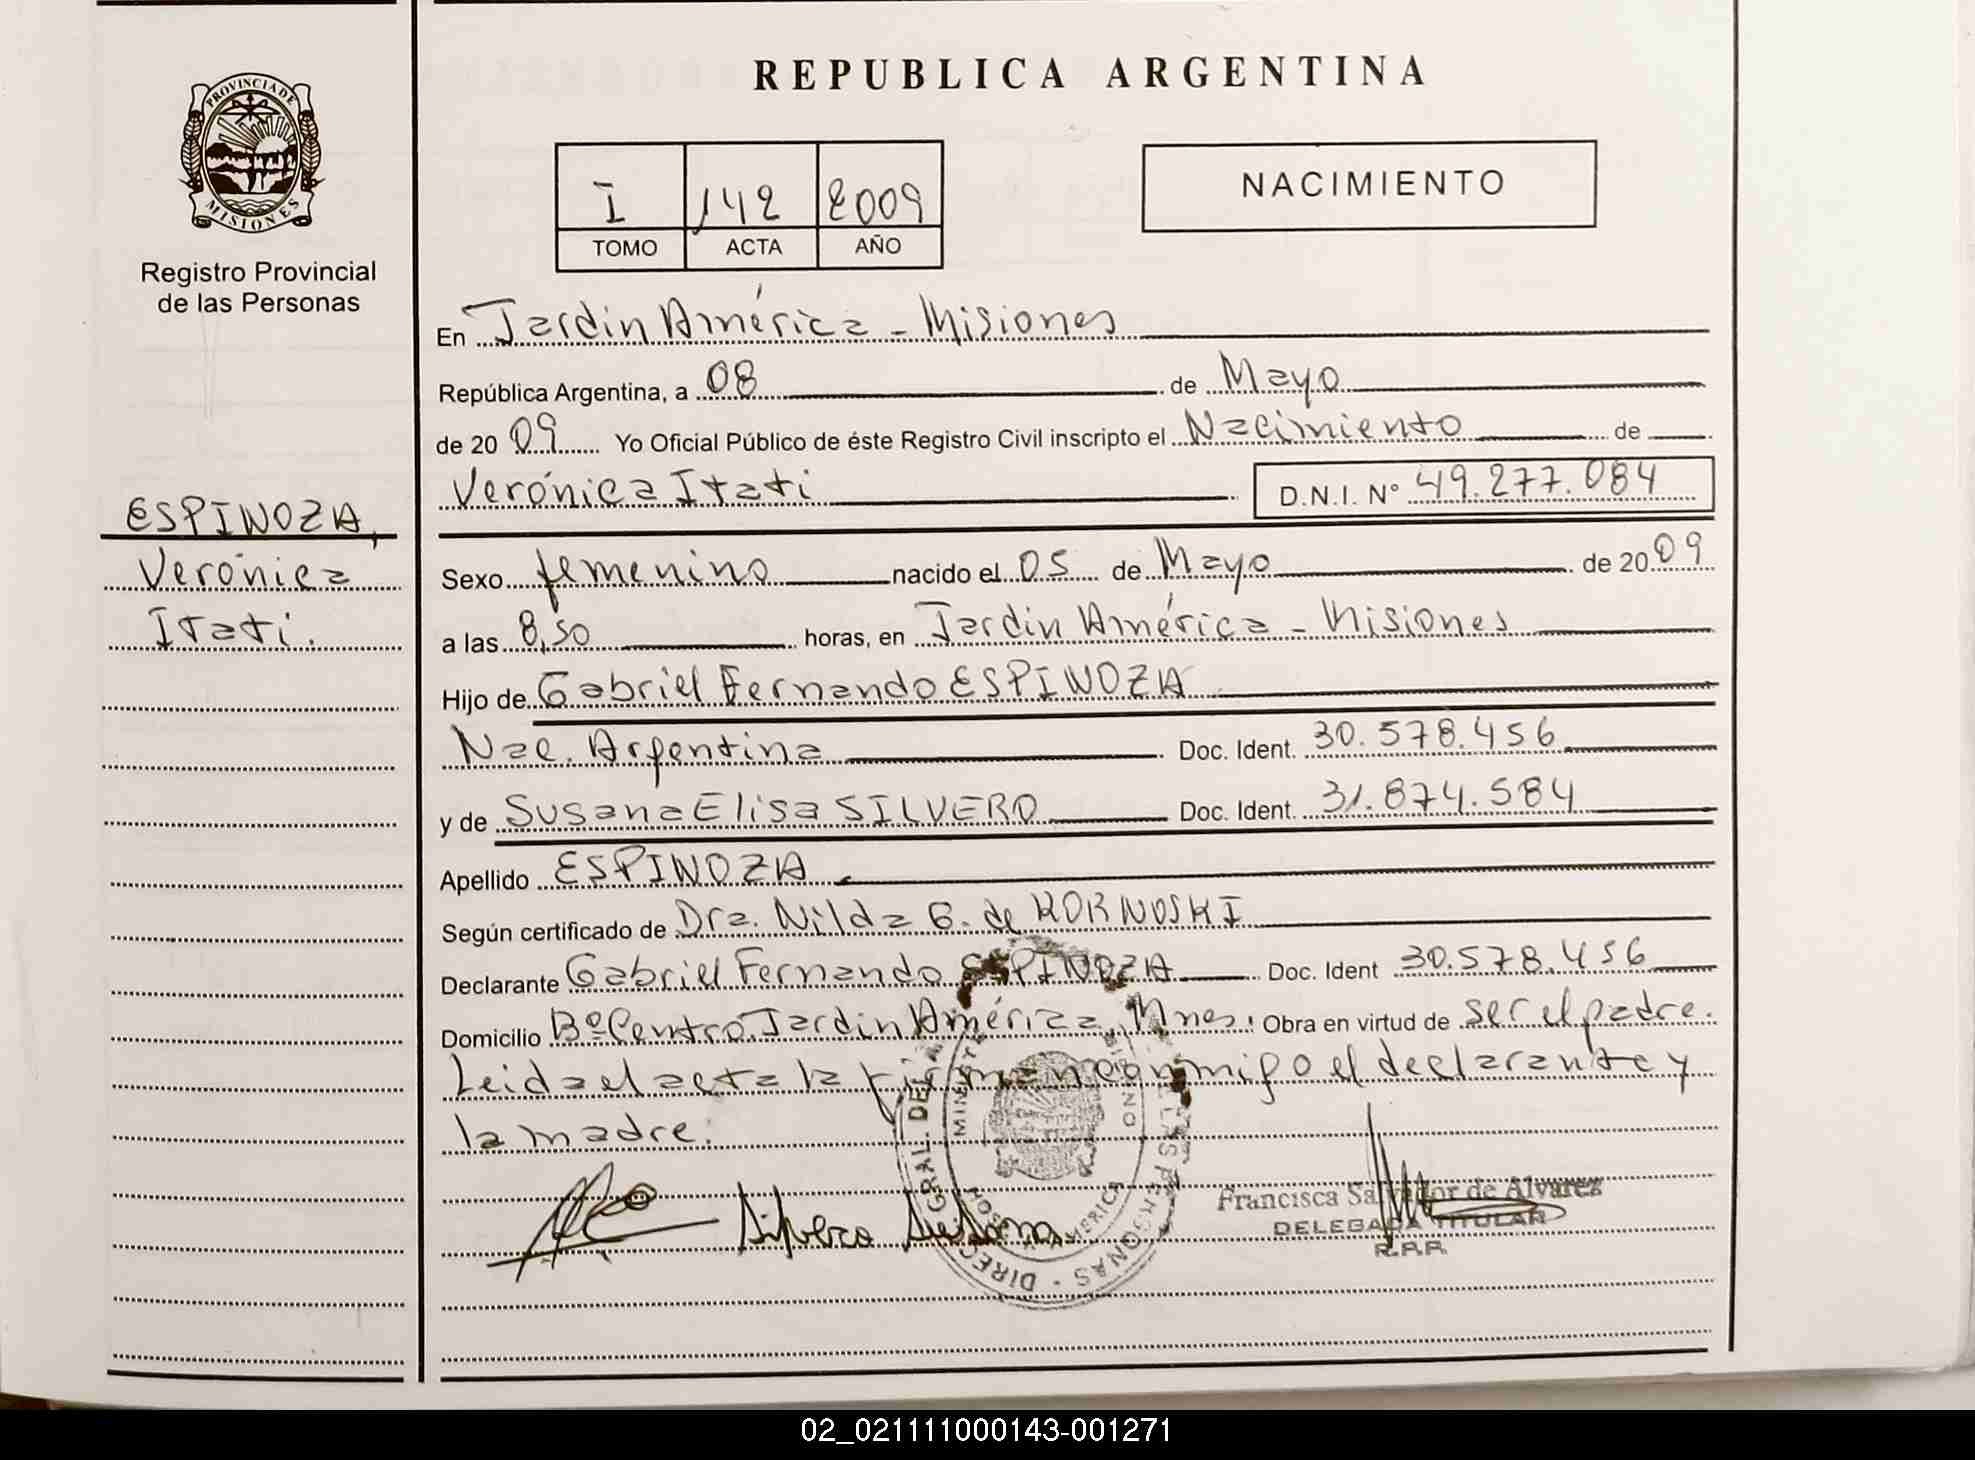 REPUBLICA ARGENTINA
PROVINCIA DE
MISIONES
Registro Provincial
de las Personas
I 142 2009
TOMO ACTA AÑO
NACIMIENTO
En Jardin América - Misiones
República Argentina, a 08 de Mayo
de 20 09 Yo Oficial Público de éste Registro Civil inscripto el Nacimiento de
Verónica Itati D.N.I. N° 49.277.084
ESPINOZA,
Verónica
Itati.
Sexo femenino nacido el 05 de Mayo de 20 09
a las 8,50 horas, en Jardin América - Misiones
Hijo de Gabriel Fernando ESPINOZA
Nac. Argentina Doc. Ident. 30.578.456
y de Susana Elisa SILVERO Doc. Ident. 31.874.584
Apellido ESPINOZA
Según certificado de Dra. Nilda G. de KORNOSKI
Declarante Gabriel Fernando ESPINOZA Doc. Ident 30.578.456
Domicilio B° Centro. Jardin América, Mnes. Obra en virtud de ser el padre.
Leida el acta la firman conmigo el declarante y
la madre.
Silvero Susana
Francisca Salvador de Alvarez
DELEGADA TITULAR
R.P.P.
02_021111000143-001271